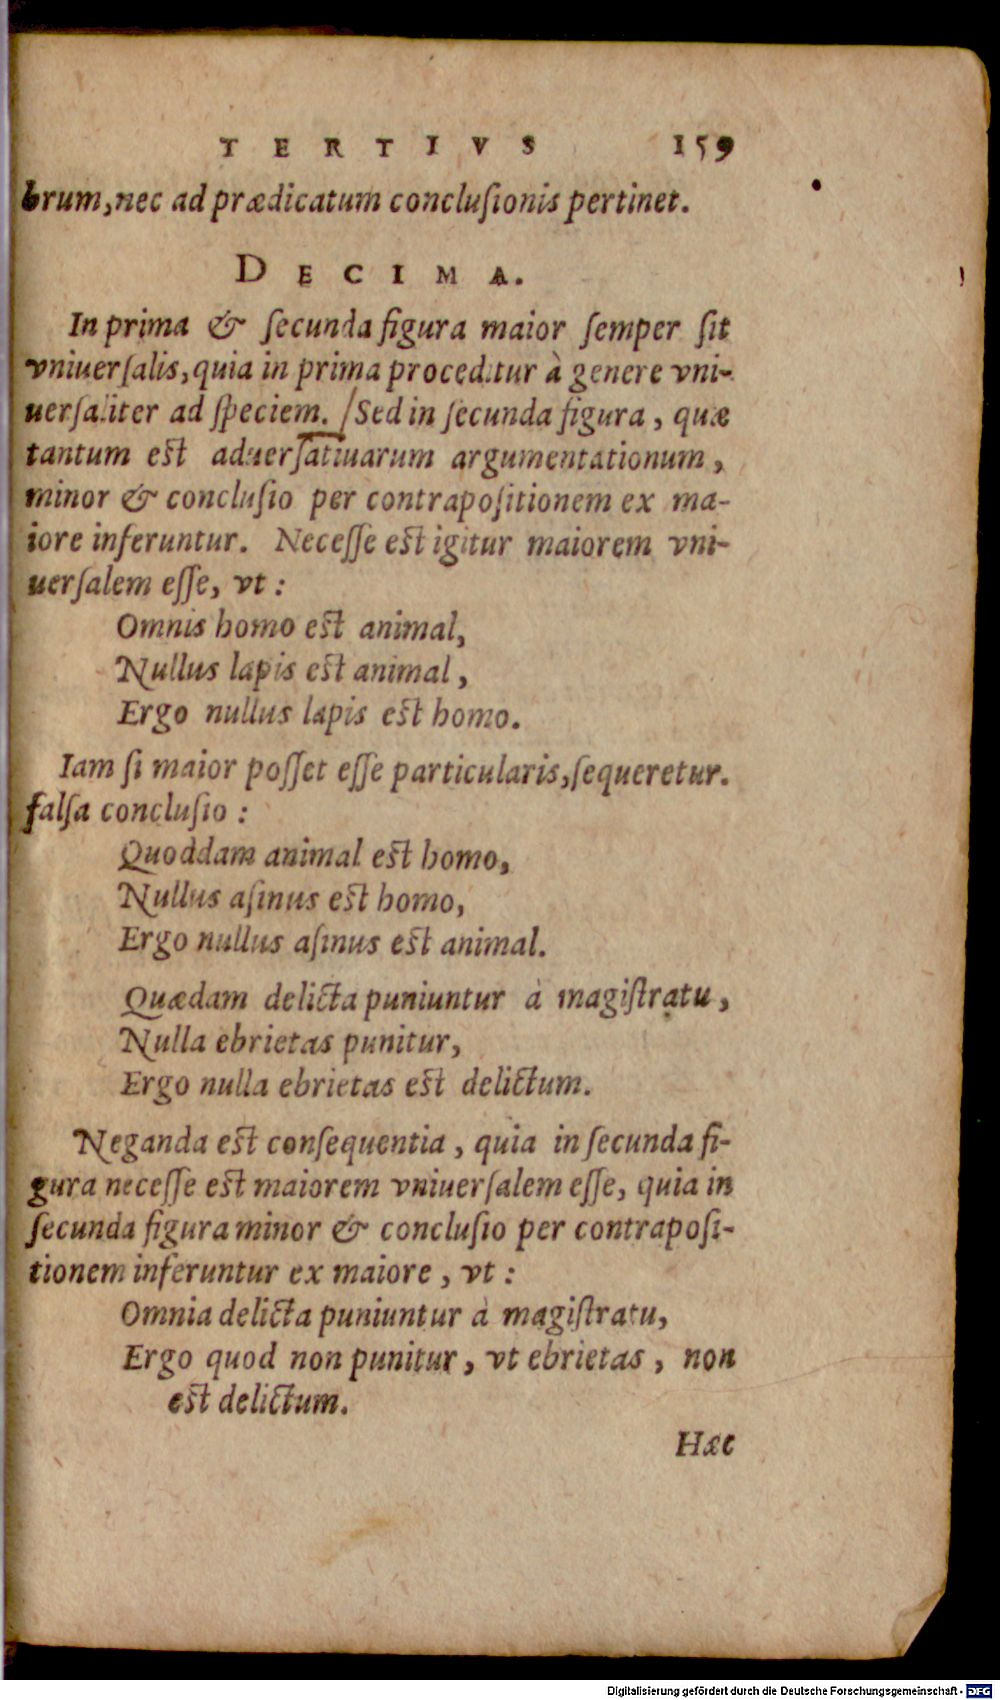 TERTIVS 159
brum, nec ad prædicatum conclusionis pertinet.
DECIMA.
In prima & secunda figura maior semper sit
vniuersalis, quia in prima proceditur à genere vni-
uersaliter ad speciem. /Sed in secunda figura, quæ
tantum est aduersatiuarum argumentationum,
minor & conclusio per contrapositionem ex ma-
iore inferuntur. Necesse est igitur maiorem vni-
uersalem esse, vt:
Omnis homo est animal,
Nullus lapis est animal,
Ergo nullus lapis est homo.
Iam si maior posset esse particularis, sequeretur.
falsa conclusio:
Quoddam animal est homo,
Nullus asinus est homo,
Ergo nullus asinus est animal.
Quædam delicta puniuntur à magistratu,
Nulla ebrietas punitur,
Ergo nulla ebrietas est delictum.
Neganda est consequentia, quia in secunda fi-
gura necesse est maiorem vniuersalem esse, quia in
secunda figura minor & conclusio per contraposi-
tionem inferuntur ex maiore, vt:
Omnia delicta puniuntur à magistratu,
Ergo quod non punitur, vt ebrietas, non
est delictum.
Hæc
Digitalisierung gefördert durch die Deutsche Forschungsgemeinschaft - DFG